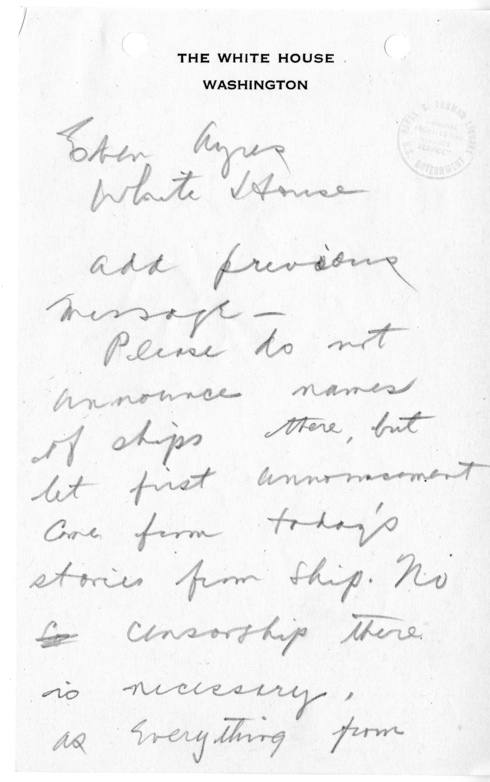 THE WHITE HOUSE
WASHINGTON
Eben Ayres
White House
add previous
message —
Please do not
announce names
of ships there, but
let first announcement
come from today's
stories from ship. No
censorship there
is necessary,
as everything from